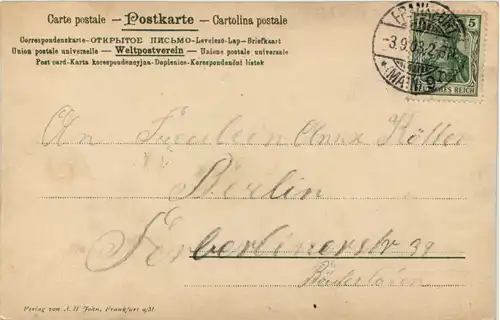 Carte postale — Postkarte — Cartolina postale
Correspondenzkarte-ОТКРЫТОЕ ПИСЬМО-Levelezö-Lap-Briefkaart
Union postale universelle — Weltpostverein — Unione postale universale
Post card-Karta korespondencyjna-Dopisnice-Korespondenční listek
FRANKFURT
-3.9.03.2-3N
* (MAIN) 9
5
DEUTSCHES REICH
An Fräulein Anna Köller
Berlin
Ferberlinerstr 39
Verlag von A. H. John, Frankfurt a/M.